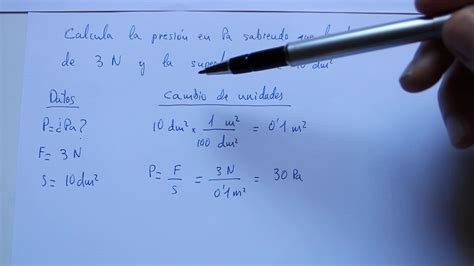 Calcula la presión en Pa sabiendo que la
de 3 N y la dm²
Datos
P=¿Pa?
F= 3N
S= 10 dm²
Cambio de unidades
10 dm² × 1 m² / 100 dm² = 0'1 m²
P= F/S = 3N / 0'1 m² = 30 Pa